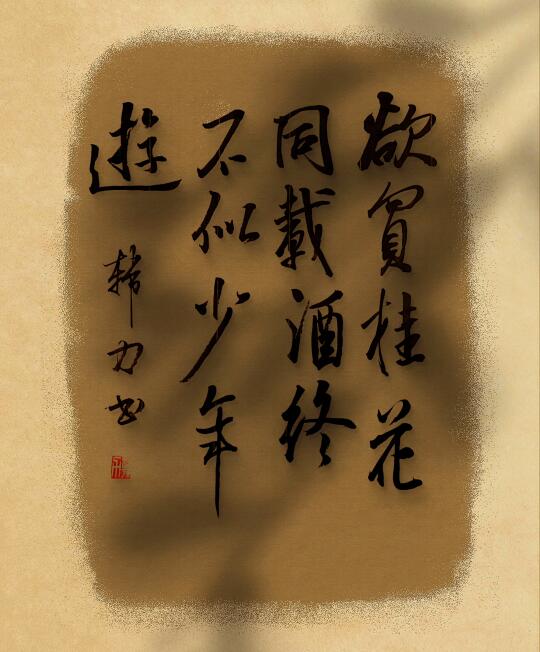 欲買桂花
同載酒終
不似少年
遊
韩力书